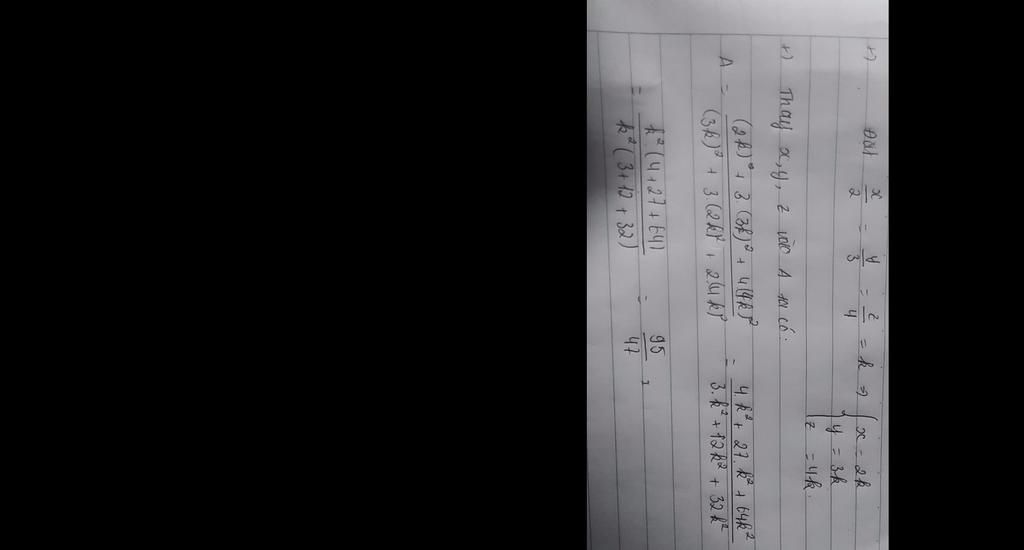 +) Đặt x/2 = y/3 = z/4 = k => { x = 2k
y = 3k
z = 4k.
+) Thay x, y, z vào A ta có:
A = ((2k)² + 3.(3k)² + 4(4k)²) / ((3k)² + 3(2k)² + 2.(4k)²) = (4.k² + 27.k² + 64k²) / (3.k² + 12k² + 32k²)
= k²(4 + 27 + 64) / k²(3 + 12 + 32) = 95/47